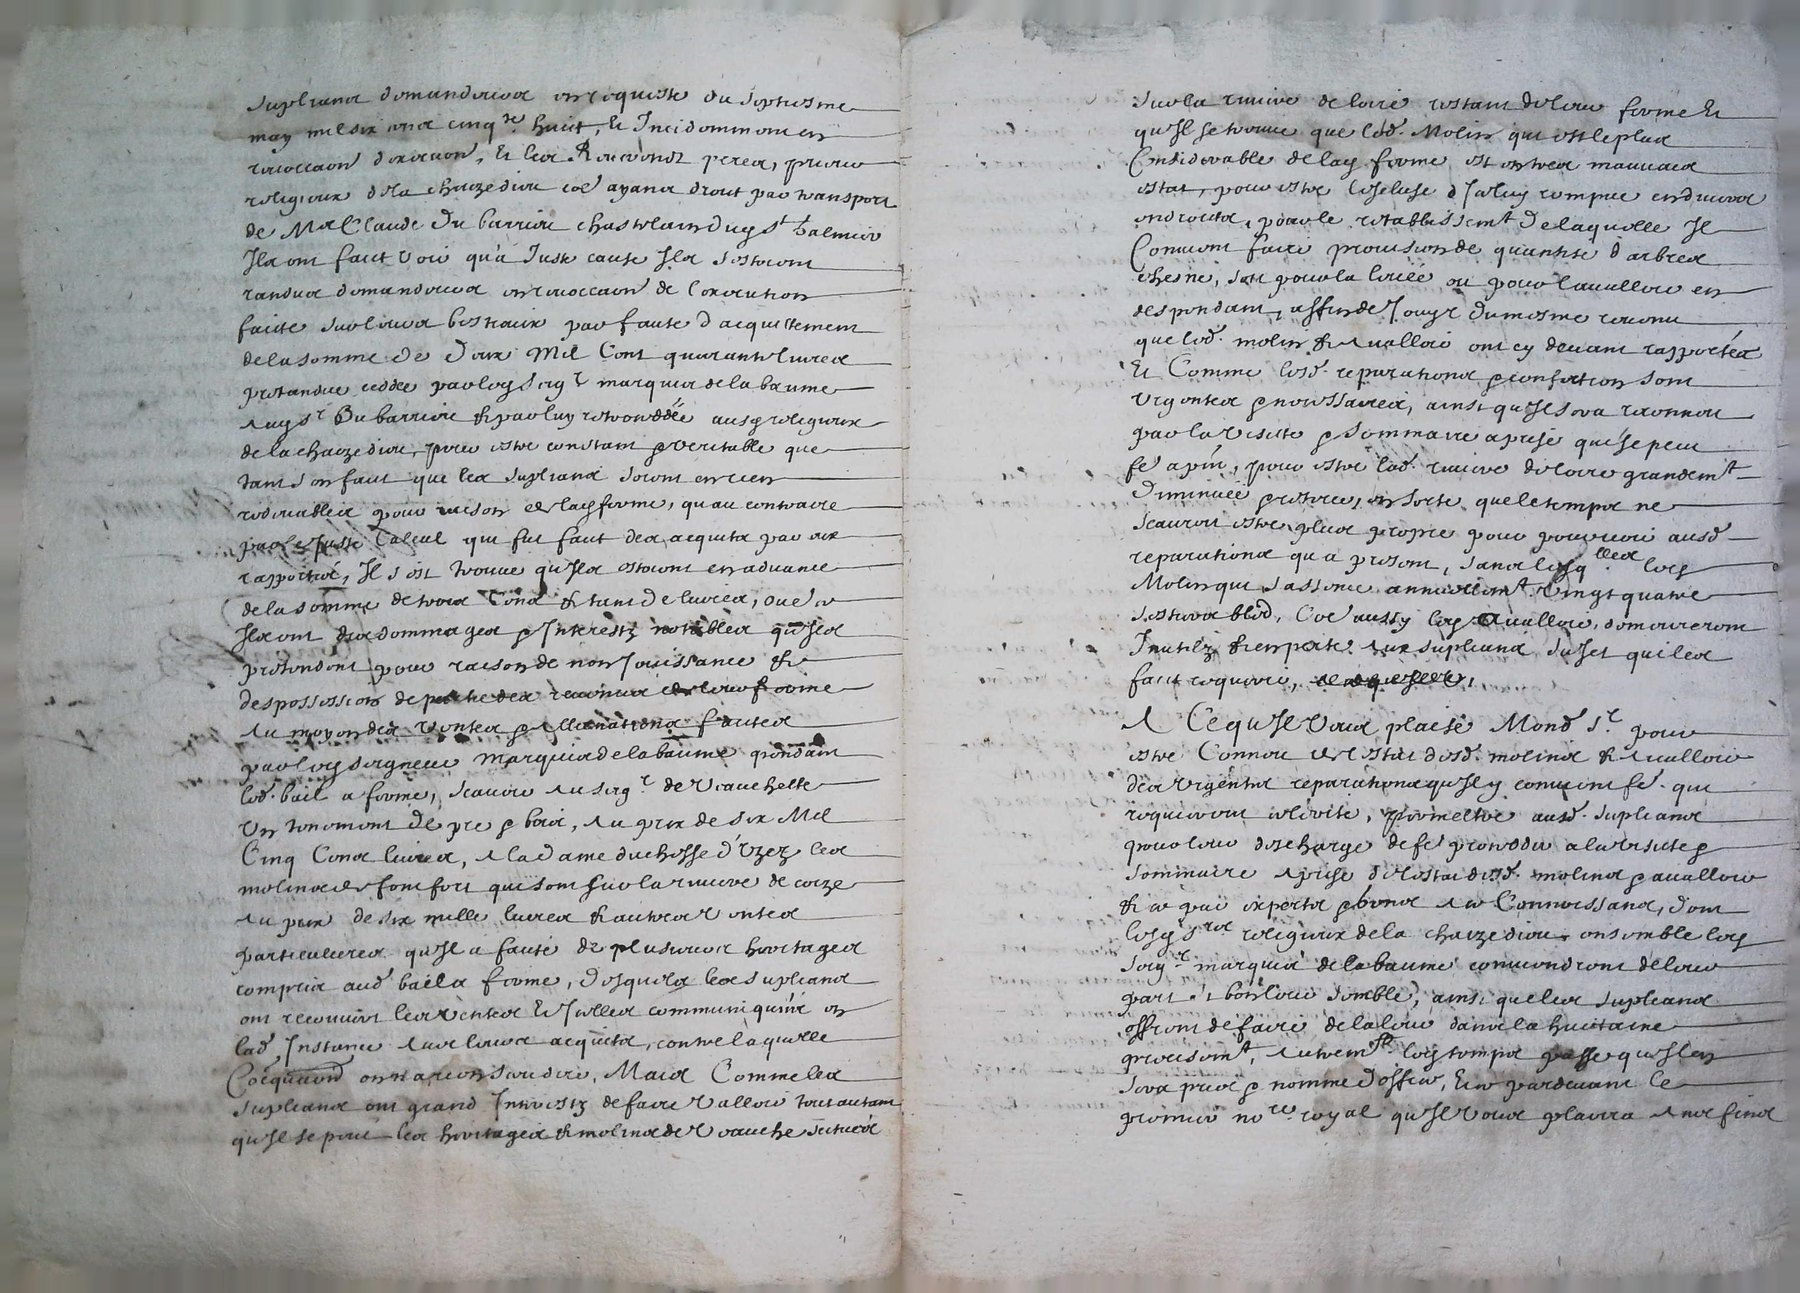 suplians demandeurs en requeste du septiesme
may mil six cens cinq.te huict, Et Incidemment en
revocaon d'execuon, Et les Reverendz peres, prieur
religieux dela chaize dieu coe ayans droit par transport
de Me Claude Du barrieu chastelain dud st Galmier
Ilz ont faict voir qu'a Juste cause Ilz sestoient
randus demandeurs en revocaon de lexecution
faicte sur leurs bestiaux par faute d'acquittement
dela somme de deux Mil Cent quarante livres
pretandue ceddée par led seigr marquis de la baume
aud sr Du barrieu & par luy retroceddée ausd religieux
de la chaize dieu, pour estre constant & veritable que
tant s'en faut que les suplians soient en rien
redevables pour raison de lad ferme, qu'au contraire
par le Juste Calcul qui fut faict des acquitz par eux
rapportés, Il s'est trouvé qu'Ilz estoient en advance
de la somme de trois Cens & tant de livres, outre
Ilz ont des dommages & Interestz notables qu'Ilz
pretendent pour raison de non Jouissance &
despossession de partie des revenus de leur ferme
Au moyen des ventes & allienations faictes
par led seigneur marquis de la baume pendant
led. bail a ferme, scavoir au seigr de Vauchette
Un tenement de pré & bois, au prix de six Mil
Cinq Cens livres, A la dame duchesse d'Uzez les
molins de fontfort qui sont sur la riviere de coize
au prix de six mille livres & autres ventes
particulieres qu'Il a faicte de plusieurs heritages
compris aud bail a ferme, desquels les suplians
ont recouvert les ventes Et Icelles communiquéé en
lad Instance avec leurs acquitz, contre laquelle
Cocquard on n'a rien sceu dire, Mais Comme les
supliants ont grand Interestz de faire valloir tout autant
qu'Il se peut les heritages & molins de Vauche situés
sur la riviere de loire restant de leur ferme Et
qu'Il se trouve que led. Molin qui est le plus
Considerable de lad ferme est en tres mauvais
estat, pour estre l'escluse d'Iceluy rompue en divers
endroitz, pour le restablissemt de laquelle Il
Convient faire provision de quantité d'arbres
chesne, soit pour la levée ou pour l'avalloir en
despendant, affin de Jouyr du mesme revenu
que led. molin & avalloir ont cy devant rapportés
Et Comme lesd. reparations & confection sont
Urgentes & necessaires, ainsi qu'Il sera recognu
par la visitte & sommaire aprise qui se peut
fe apnt, pour estre lad. riviere de loire grandemt
Diminuée & retirée, en sorte que le temps ne
scauroit estre plus propre pour pourvoir ausd
reparations qu'a present, sans lesqlles led
Molin qui s'afferme annuellemt Vingt quatre
sestiers bled, Coe aussy led avalloir, demeureront
Inutilz & en perte aux suplians sujet qui les
faict requerir,
A Ce qu'Il Vous plaise Mond sr pour
estre Connou de l'estat desd. molins & avalloir
des Urgentes reparations qu'Il y convient fe. qui
requierent celerité, permettre ausd. suplians
pour leur descharge de fe proceder a la visitte &
sommaire aprise de l'estat desd. molins & avalloir
& ce par expertz & gens a ce Connoissans, dont
lesd srs religieux de la chaize dieu, ensemble led
seigr marquis de la baume conviendront de leur
part si bon leur semble, ainsi que les suplians
offrent de faire de la leur dans la huictaine
precisemt, autremt led temps passé qu'Il en
sera pris & nommé d'office, Et ce pardevant le
premier nore royal qu'Il Vous plairra a nos fins